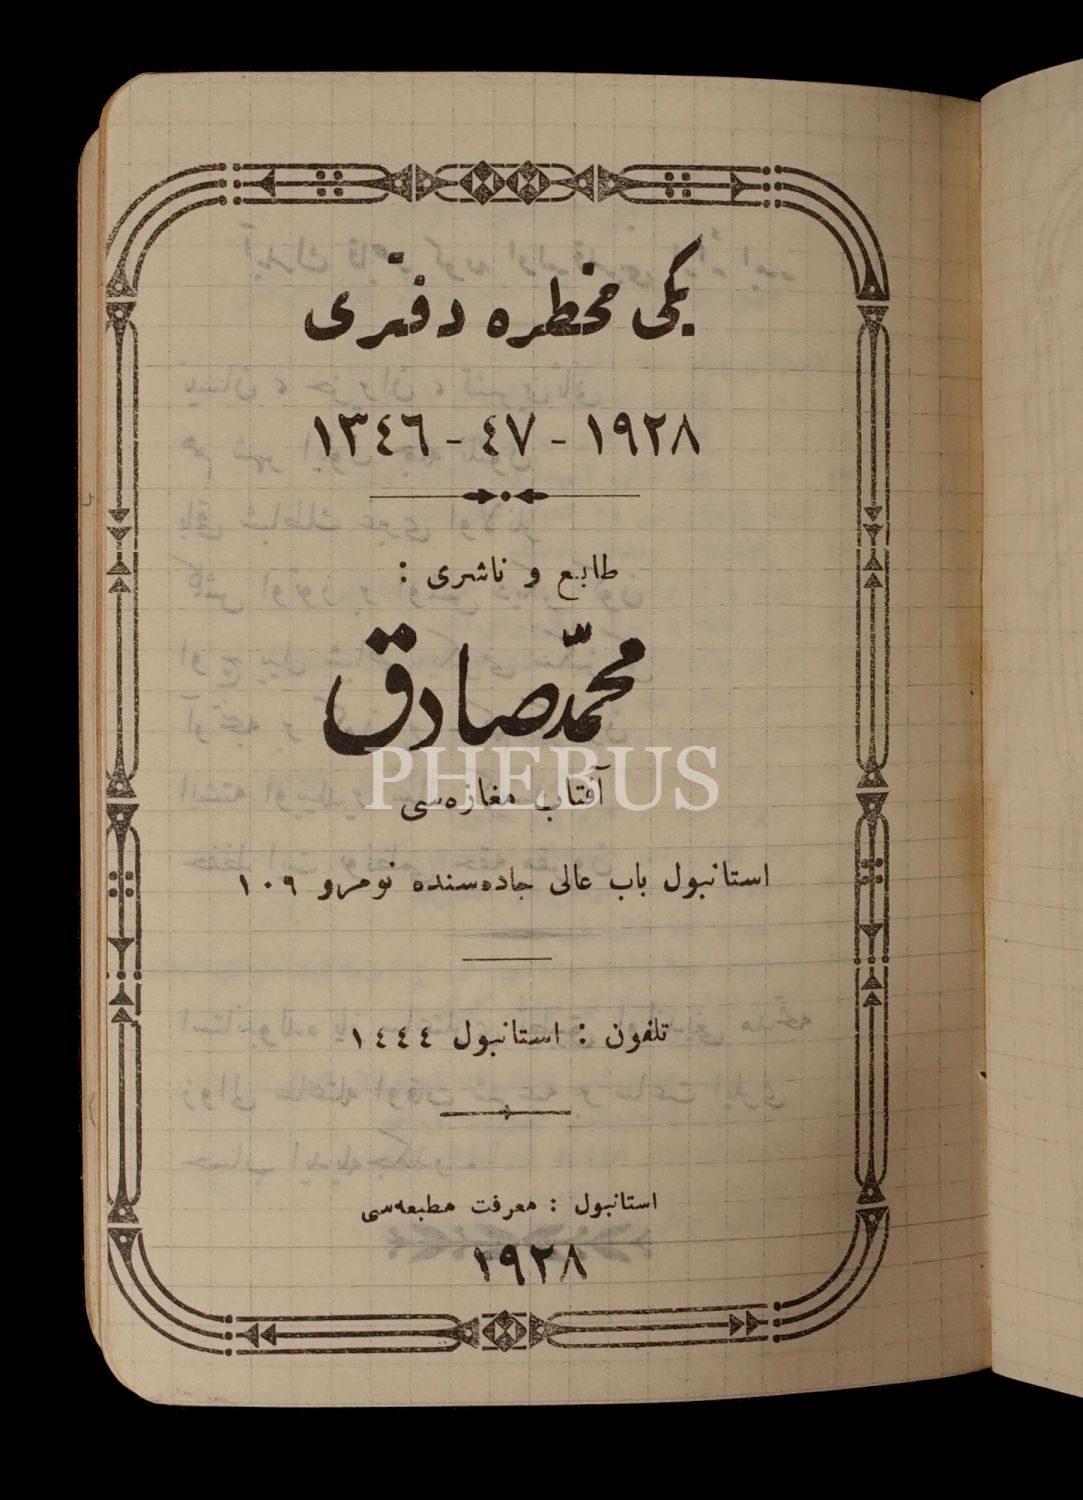 یکی مخطره دفتری
١٩٢٨ - ٤٧ - ١٣٤٦
طابع و ناشری :
محمّد صادق
PHEBUS
آفتاب مغازه‌سی
استانبول باب عالی جاده‌سنده نومرو ١٠٩
تلفون : استانبول ١٤٤٤
استانبول : معرفت مطبعه‌سی
١٩٢٨